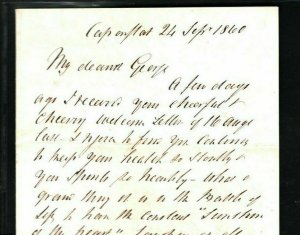 24 Sept 1860
My dearest George
A few days
ago I received your cheerful &
cheery welcome letter of 16 Augt
last. I rejoice to find you continue
to keep your health so
your Spirits so heartily – what a
grand thing it is in the Battle of
life to have the constant "Sunshine
of the heart"